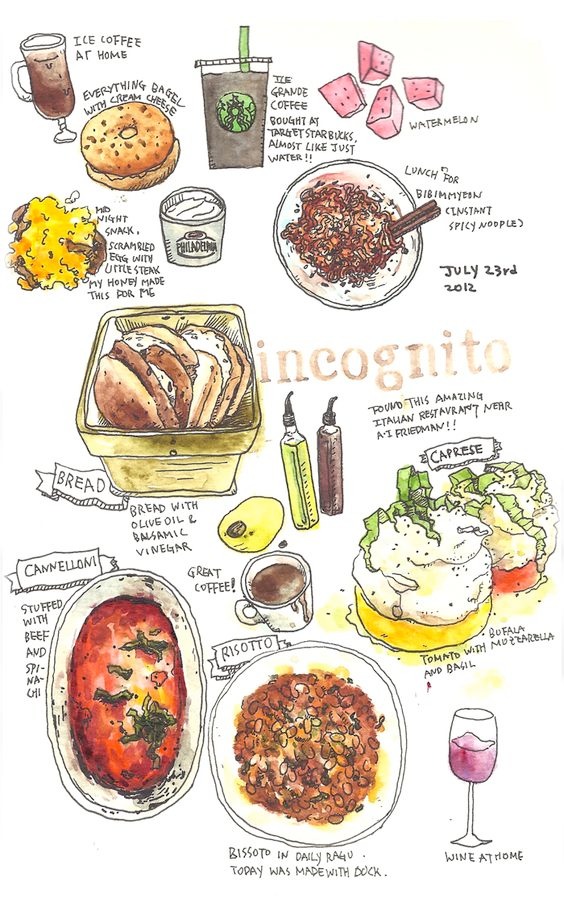 ICE COFFEE
AT HOME
EVERYTHING BAGEL
WITH CREAM CHEESE
ICE
GRANDE
COFFEE
BOUGHT AT
TARGET STARBUCKS,
ALMOST LIKE JUST
WATER!!
WATERMELON
MID
NIGHT
SNACK.
SCRAMBLED
EGG WITH
LITTLE STEAK
MY HONEY MADE
THIS FOR ME
PHILADELPHIA
LUNCH FOR
BIBIMMYEON
(INSTANT
SPICY NOODLE)
JULY 23rd
2012
incognito
FOUND THIS AMAZING
ITALIAN RESTAURANT NEAR
A.I FRIEDMAN!!
BREAD
BREAD WITH
OLIVE OIL &
BALSAMIC
VINEGAR
CAPRESE
BUFALA
TOMATO WITH MOZZARELLA
AND BASIL
GREAT
COFFEE!
CANNELLONI
STUFFED
WITH
BEEF
AND
SPI-
NA-
CHI
RISOTTO
RISSOTO IN DAILY RAGU.
TODAY WAS MADE WITH DUCK.
WINE AT HOME